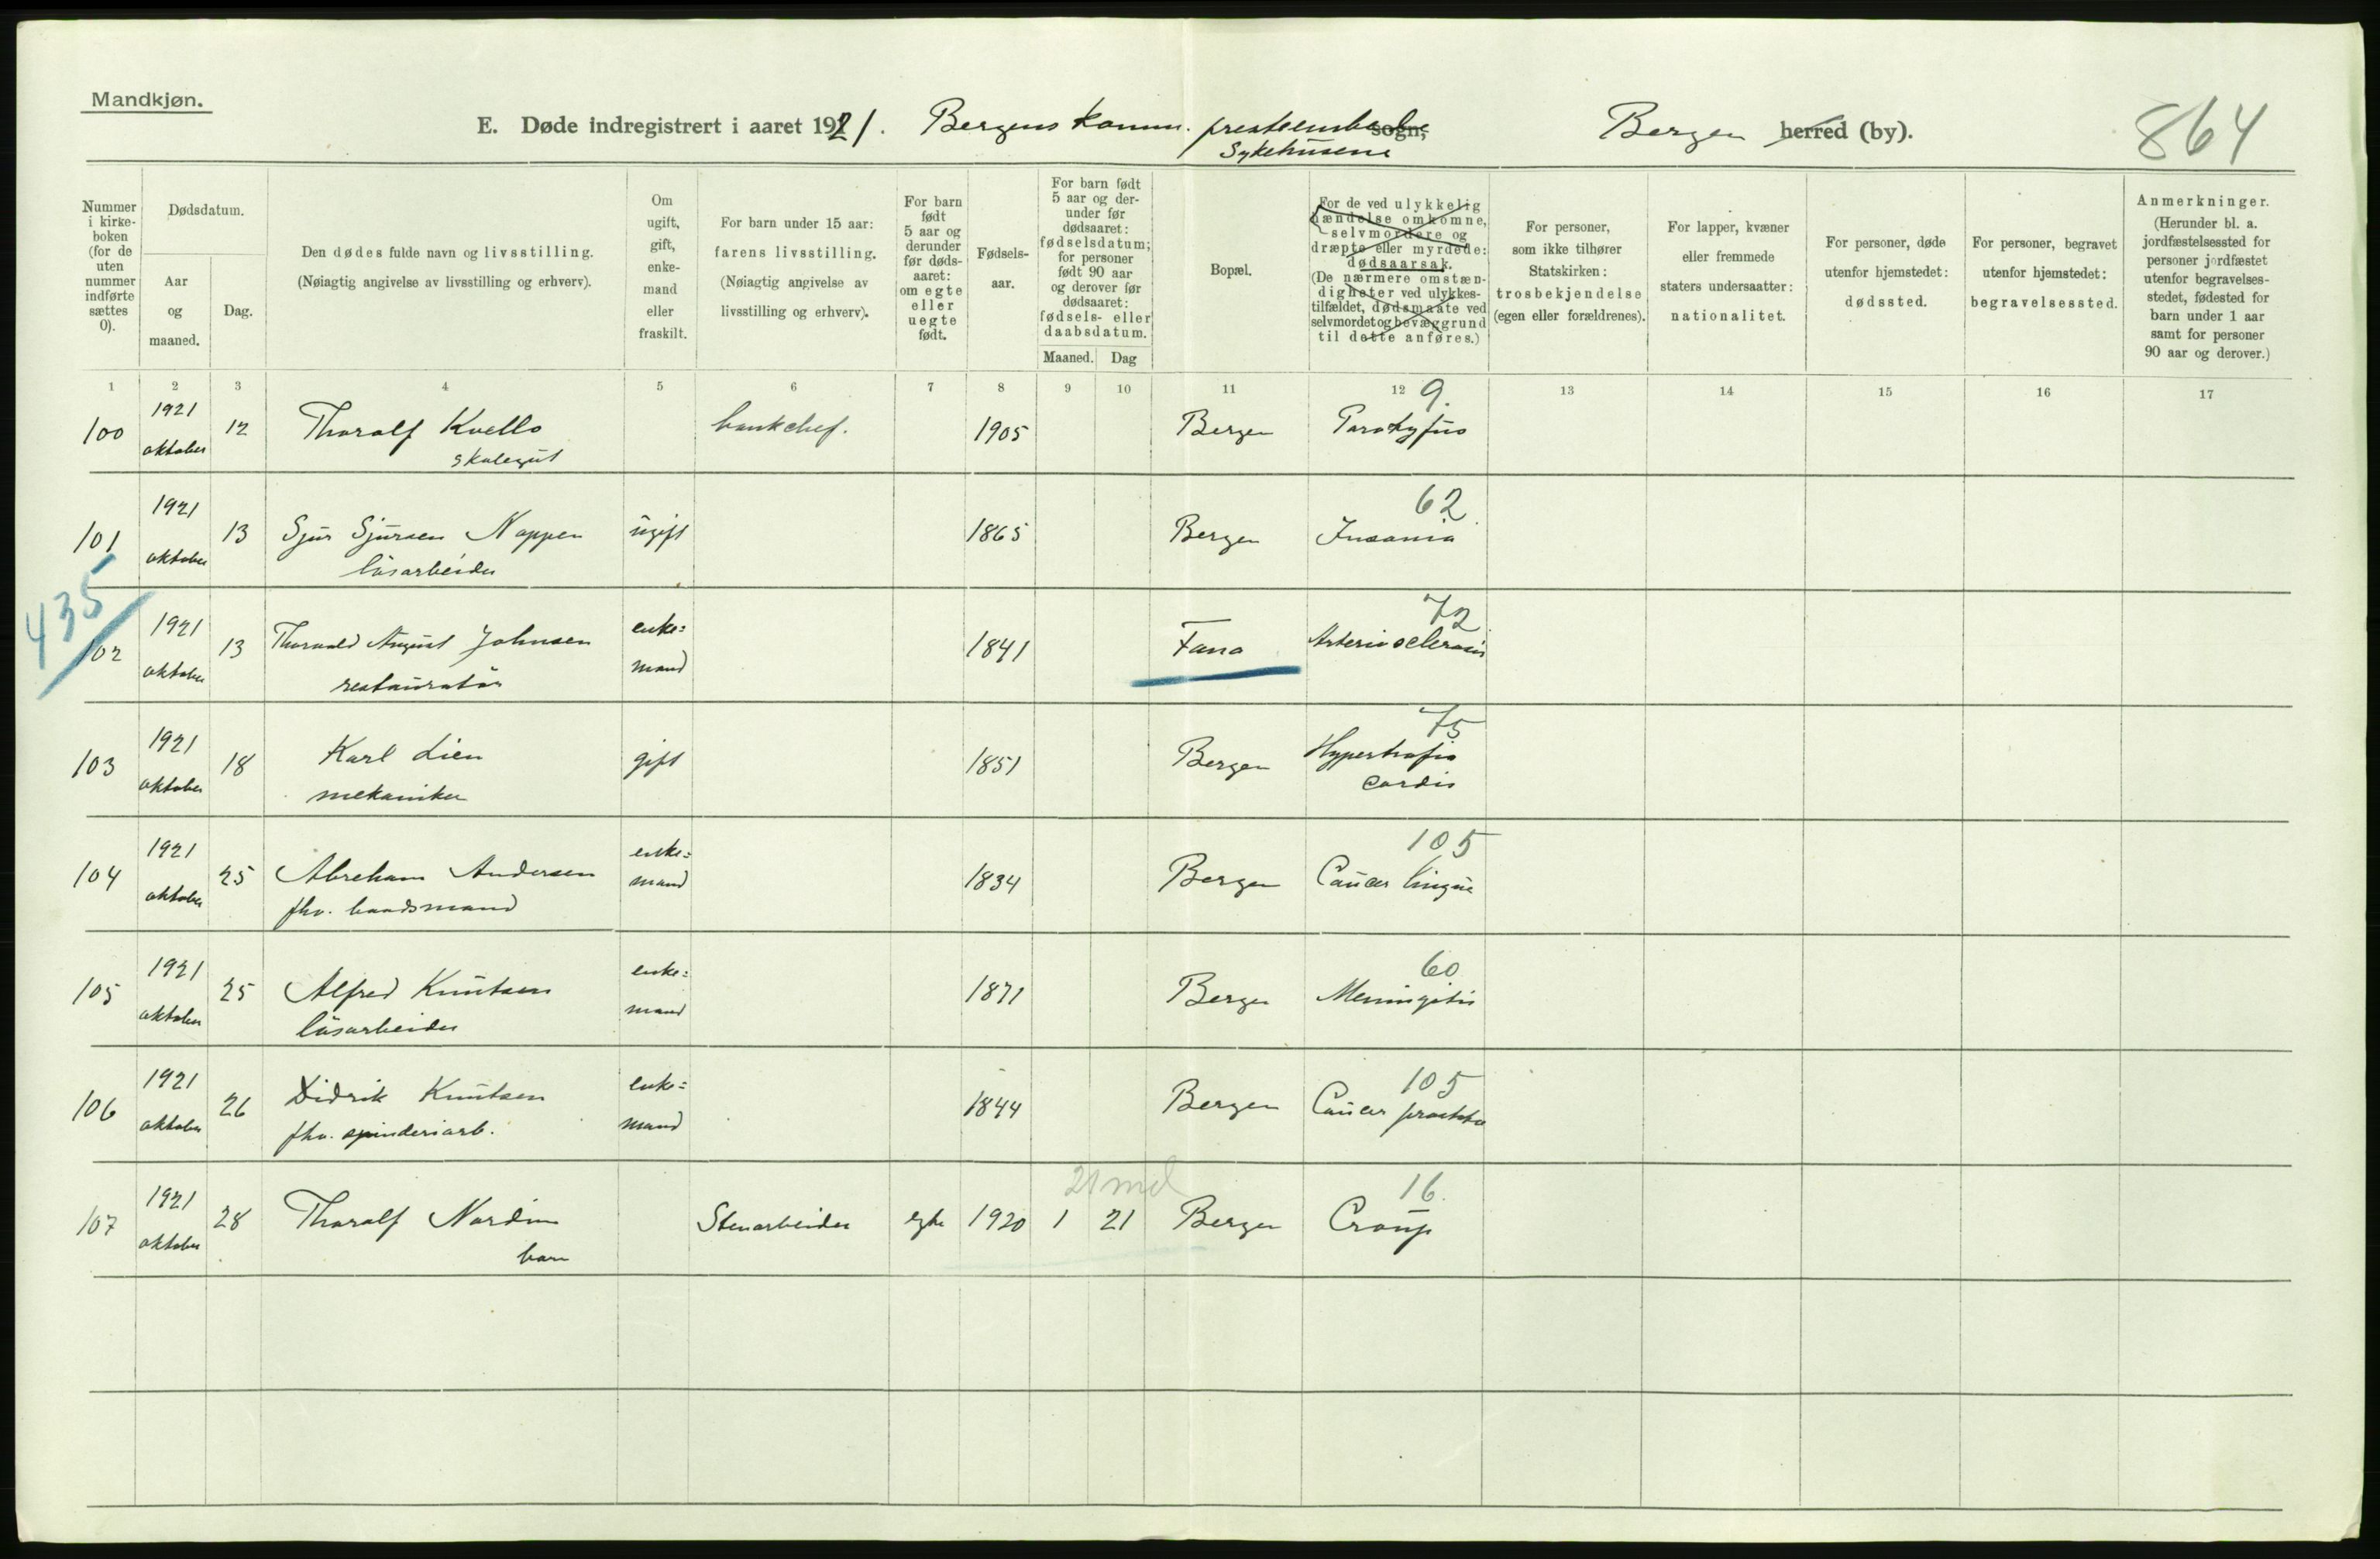 Mandkjøn.
E. Døde indregistrert i aaret 1921. Bergens komm. presteembede sogn, Bergen herred (by). 864
Sykehusene
Nummer i kirke-boken (for de uten nummer indførte sættes 0).
Dødsdatum.
Aar og maaned.
Dag.
Den dødes fulde navn og livsstilling.
(Nøiagtig angivelse av livsstilling og erhverv).
Om ugift, gift, enke-mand eller fraskilt.
For barn under 15 aar:
farens livsstilling.
(Nøiagtig angivelse av
livsstilling og erhverv).
For barn født 5 aar og derunder før døds-aaret: om egte eller uegte født.
Fødsels-aar.
For barn født 5 aar og der-under før dødsaaret: fødselsdatum; for personer født 90 aar og derover før dødsaaret: fødsels- eller daabsdatum.
Maaned. Dag
Bopæl.
For de ved ulykkelig
hændelse omkomne,
selvmordere og
dræpte eller myrdede:
dødsaarsak.
(De nærmere omstæn-
digheter ved ulykkes-
tilfældet, dødsmaate ved
selvmordet og bevæggrund
til dette anføres.)
For personer,
som ikke tilhører
Statskirken:
trosbekjendelse
(egen eller forældrenes).
For lapper, kvæner
eller fremmede
staters undersaatter:
nationalitet.
For personer, døde
utenfor hjemstedet:
dødssted.
For personer, begravet
utenfor hjemstedet:
begravelsessted.
Anmerkninger.
(Herunder bl. a.
jordfæstelsessted for
personer jordfæstet
utenfor begravelses-
stedet, fødested for
barn under 1 aar
samt for personer
90 aar og derover.)
1 2 3 4 5 6 7 8 9 10 11 12 13 14 15 16 17
100 1921 oktober 12 Thoralf Kvello bankchef. 1905 Bergen 9. Paratyfus
skolegut
101 1921 oktober 13 Sjur Sjursen Noppen ugift 1865 Bergen 62 Insania
løsarbeider
435
102 1921 oktober 13 Thorvald August Johnsen enke=mand 1841 Fana 72 Arteriosclerosis
restauratør
103 1921 oktober 18 Karl Lien gift 1851 Bergen 75 Hypertrofia cordis
mekaniker
104 1921 oktober 25 Abraham Andersen enke=mand 1834 Bergen 105 Cancer lingue
fhv. baadsmand
105 1921 oktober 25 Alfred Knutsen enke=mand 1871 Bergen 60 Meningitis
løsarbeider
106 1921 oktober 26 Didrik Knutsen enke=mand 1844 Bergen 105 Cancer prostata
fhv. spinderiarb.
21 md
107 1921 oktober 28 Thoralf Nordin Stenarbeider egte 1920 1 21 Bergen 16. Croup
barn